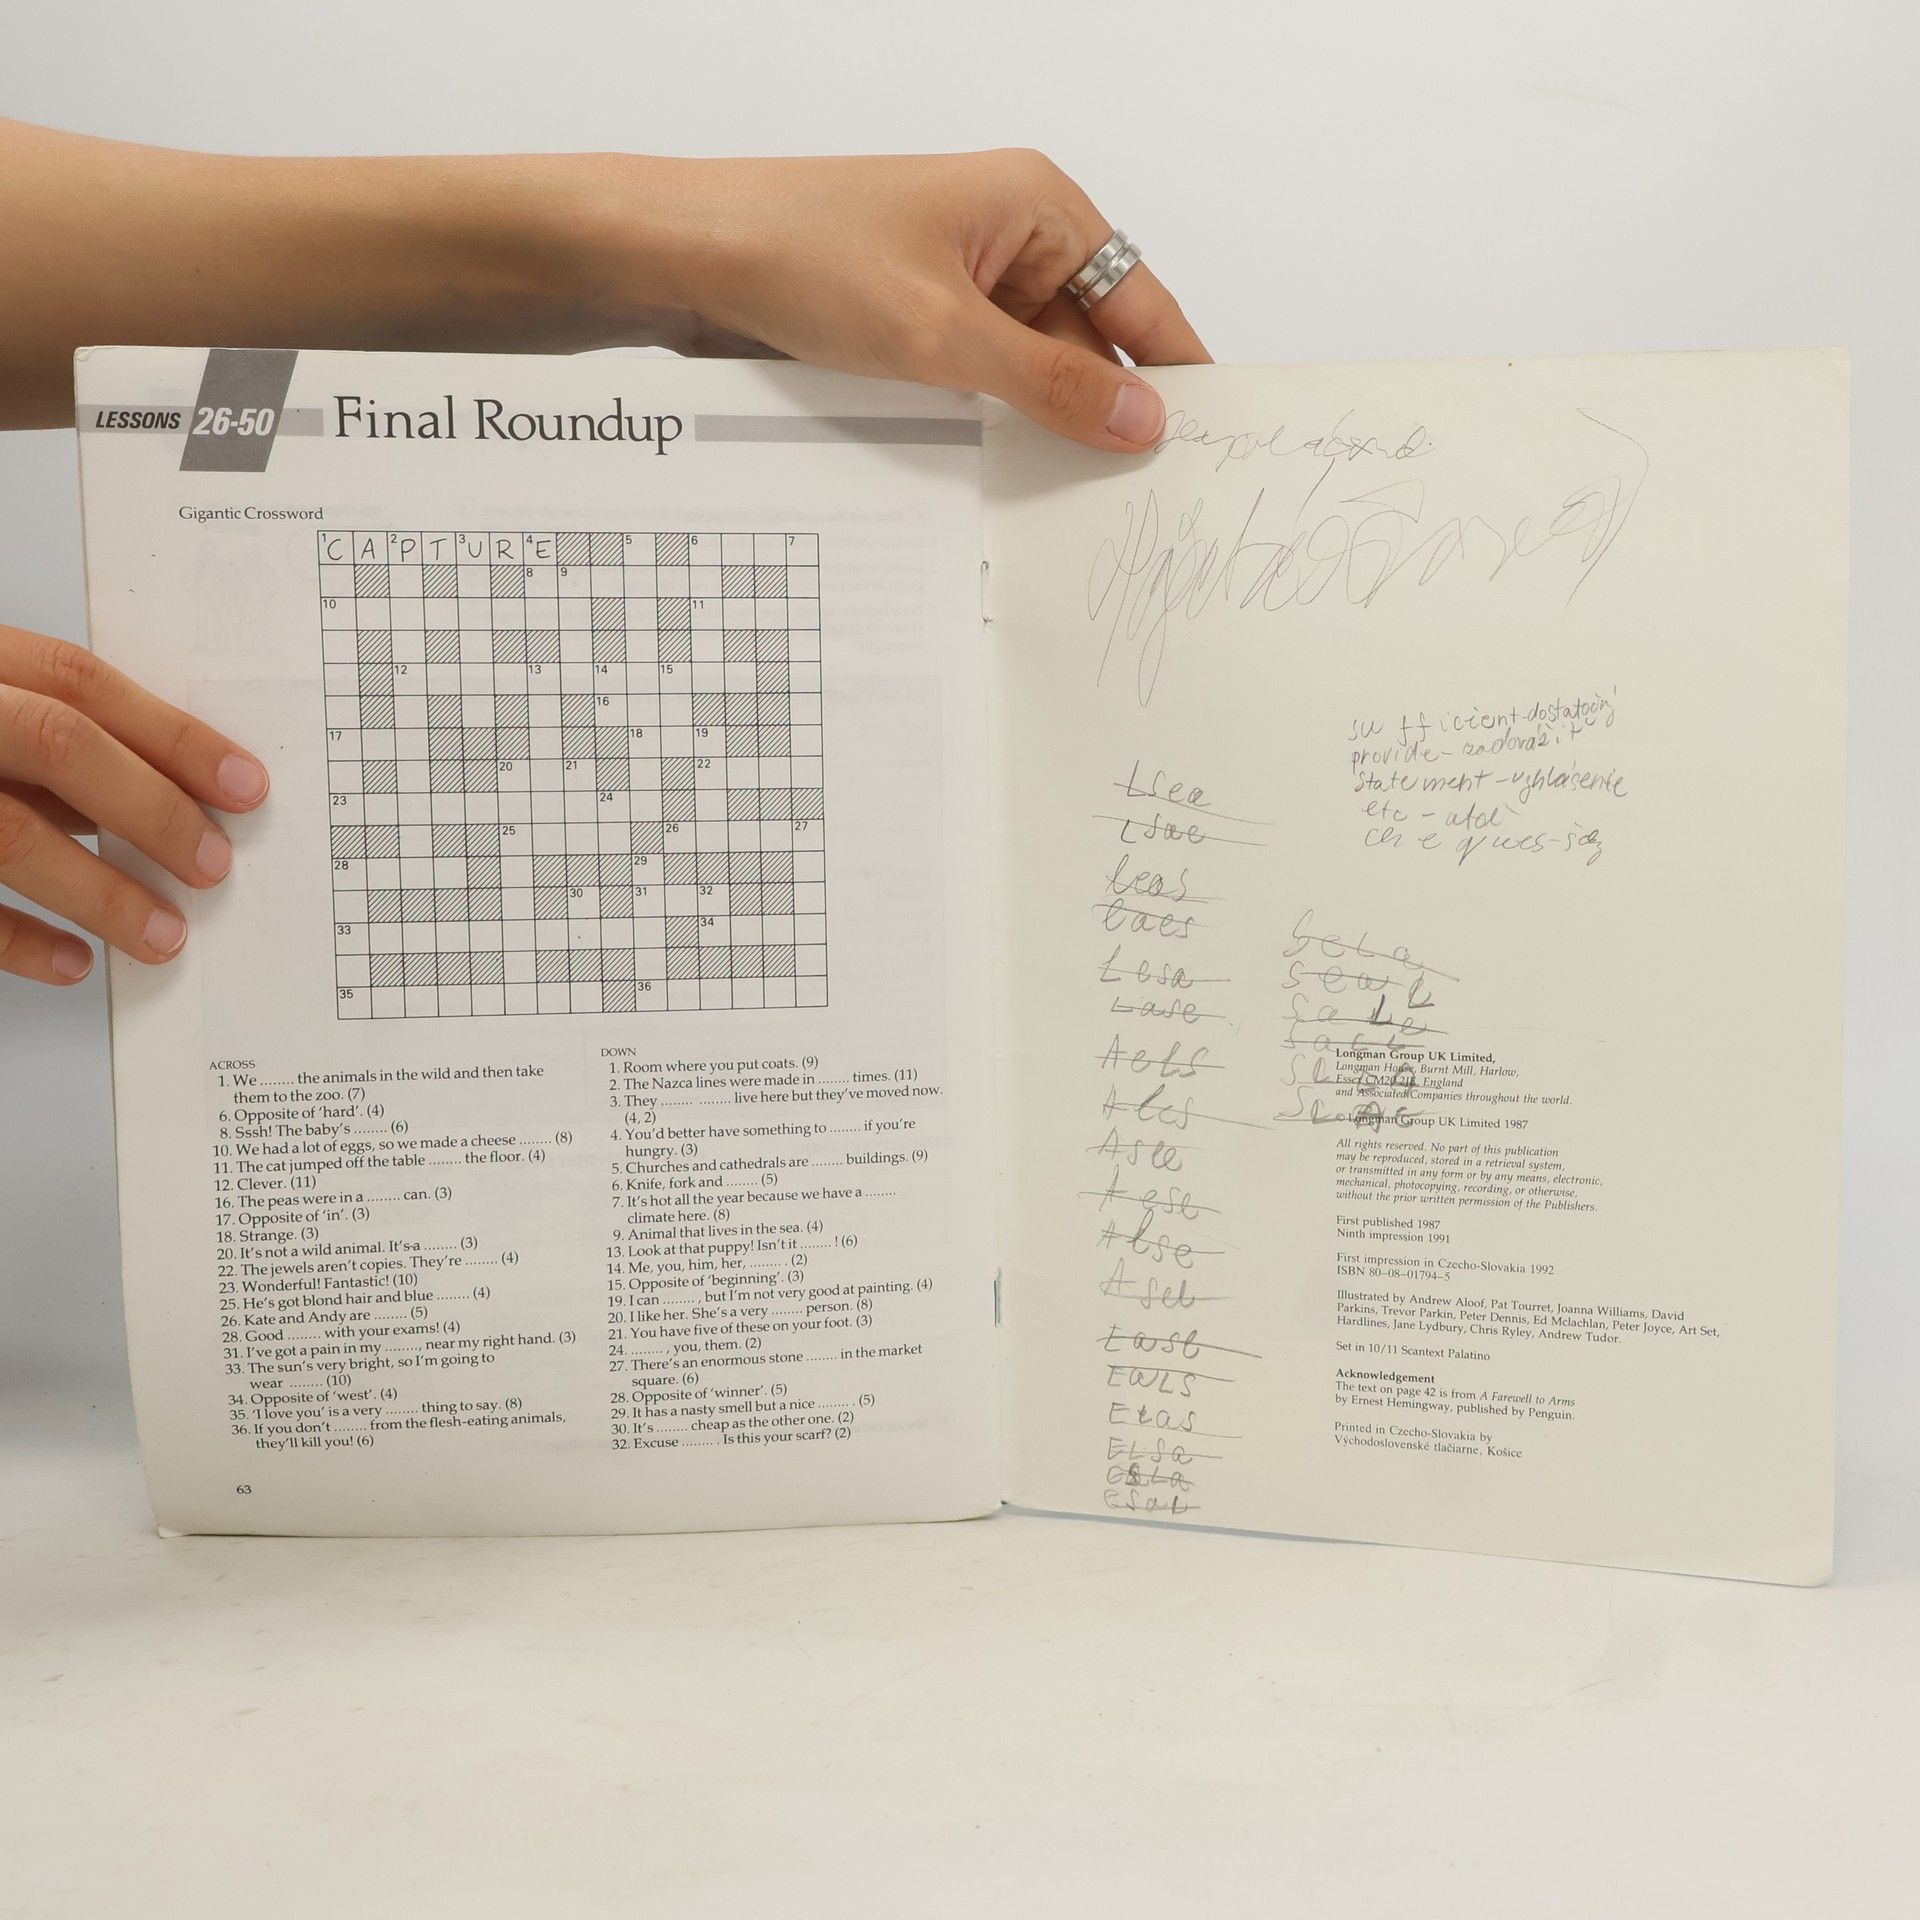 LESSONS 26-50 Final Roundup
Gigantic Crossword
1 C A 2 P T 3 U R 4 E 5 6 7
8 9
10 11
12 13 14 15
16
17 18 19
20 21 22
23 24
25 26 27
28 29
30 31 32
33 34
35 36
ACROSS
1. We ........ the animals in the wild and then take
them to the zoo. (7)
6. Opposite of 'hard'. (4)
8. Sssh! The baby's ........ (6)
10. We had a lot of eggs, so we made a cheese ........ (8)
11. The cat jumped off the table ........ the floor. (4)
12. Clever. (11)
16. The peas were in a ........ can. (3)
17. Opposite of 'in'. (3)
18. Strange. (3)
20. It's not a wild animal. It's a ........ (3)
22. The jewels aren't copies. They're ........ (4)
23. Wonderful! Fantastic! (10)
25. He's got blond hair and blue ........ (4)
26. Kate and Andy are ........ (5)
28. Good ........ with your exams! (4)
31. I've got a pain in my ........, near my right hand. (3)
33. The sun's very bright, so I'm going to
wear ........ (10)
34. Opposite of 'west'. (4)
35. 'I love you' is a very ........ thing to say. (8)
36. If you don't ........ from the flesh-eating animals,
they'll kill you! (6)
DOWN
1. Room where you put coats. (9)
2. The Nazca lines were made in ........ times. (11)
3. They ........ ........ live here but they've moved now.
(4, 2)
4. You'd better have something to ........ if you're
hungry. (3)
5. Churches and cathedrals are ........ buildings. (9)
6. Knife, fork and ........ (5)
7. It's hot all the year because we have a ........
climate here. (8)
9. Animal that lives in the sea. (4)
13. Look at that puppy! Isn't it ........ ! (6)
14. Me, you, him, her, ........ . (2)
15. Opposite of 'beginning'. (3)
19. I can ........ , but I'm not very good at painting. (4)
20. I like her. She's a very ........ person. (8)
21. You have five of these on your foot. (3)
24. ........ , you, them. (2)
27. There's an enormous stone ........ in the market
square. (6)
28. Opposite of 'winner'. (5)
29. It has a nasty smell but a nice ........ . (5)
30. It's ........ cheap as the other one. (2)
32. Excuse ........ . Is this your scarf? (2)
63
sufficient-dostatočný
provide-zadovážiť
statement-vyhlásenie
etc - atď
Lsea
Lsae
leas
laes
Lesa
Lase
Aels
Ales
Asle
Aesl
Alse
Asel
Easl
Eals
Elas
Elsa
Esla
Esal
Sela
Seal
Sale
Sael
Slea
Slae
Longman Group UK Limited,
Longman House, Burnt Mill, Harlow,
Essex CM20 2JE, England
and Associated Companies throughout the world.
© Longman Group UK Limited 1987
All rights reserved. No part of this publication
may be reproduced, stored in a retrieval system,
or transmitted in any form or by any means, electronic,
mechanical, photocopying, recording, or otherwise,
without the prior written permission of the Publishers.
First published 1987
Ninth impression 1991
First impression in Czecho-Slovakia 1992
ISBN 80-08-01794-5
Illustrated by Andrew Aloof, Pat Tourret, Joanna Williams, David
Parkins, Trevor Parkin, Peter Dennis, Ed Mclachlan, Peter Joyce, Art Set,
Hardlines, Jane Lydbury, Chris Ryley, Andrew Tudor.
Set in 10/11 Scantext Palatino
Acknowledgement
The text on page 42 is from A Farewell to Arms
by Ernest Hemingway, published by Penguin.
Printed in Czecho-Slovakia by
Východoslovenské tlačiarne, Košice